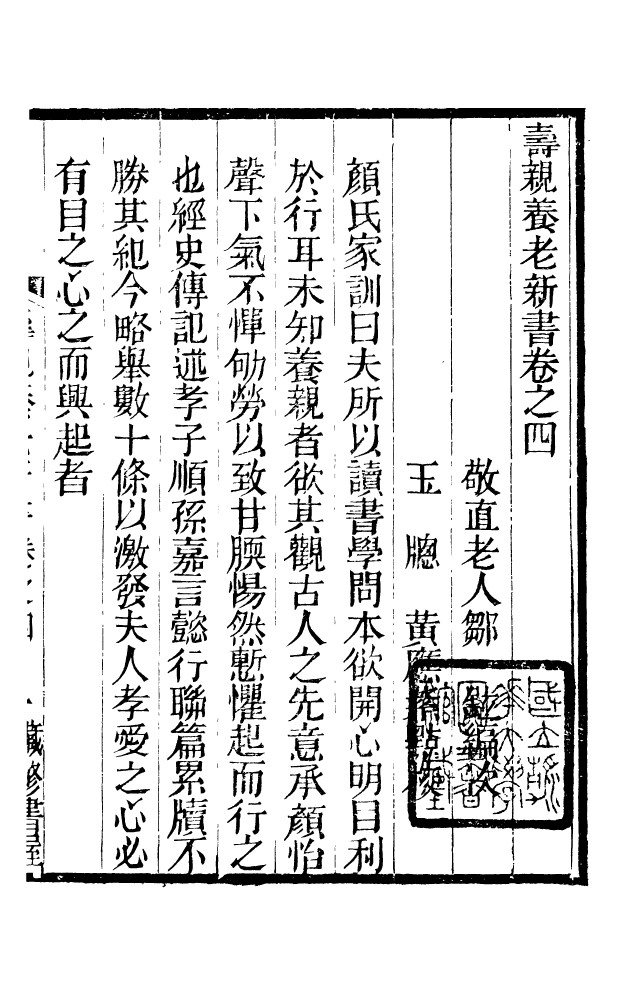 壽親養老新書卷之四
敬直老人鄒鉉編次
玉牕黃應
顏氏家訓曰夫所以讀書學問本欲開心明目利
於行耳未知養親者欲其觀古人之先意承顏怡
聲下氣不憚劬勞以致甘腝惕然慙懼起而行之
也經史傳記述孝子順孫嘉言懿行聯篇累牘不
勝其紀今略舉數十條以激發夫人孝愛之心必
有目之心之而興起者
藏修書屋